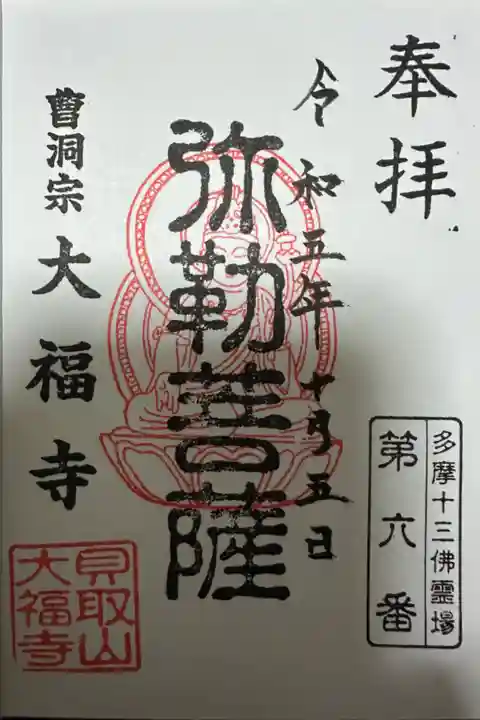 奉拝
多摩十三佛霊場
第六番
令和五年十月五日
弥勒菩薩
曹洞宗
大福寺
貝取山
大福寺